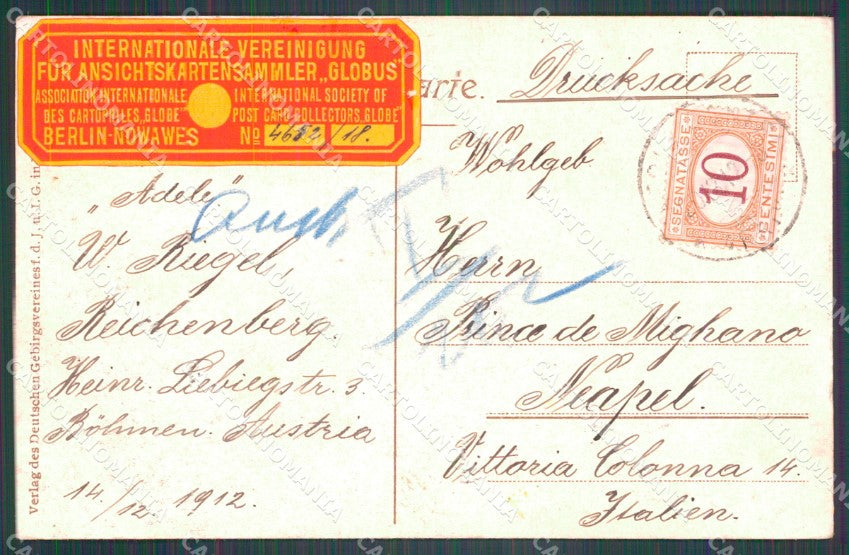 INTERNATIONALE VEREINIGUNG
FÜR ANSICHTSKARTENSAMMLER „GLOBUS"
ASSOCIATION INTERNATIONALE
DES CARTOPHILES „GLOBE"
INTERNATIONAL SOCIETY OF
POST CARD COLLECTORS „GLOBE"
BERLIN-NOWAWES
No 4682/18.
arte.
Drucksache
SEGNATASSE
10
CENTESIMI
„Adele"
W Riegel,
Reichenberg.
Heinr. Liebiegstr. 3
Böhmen. Austria
14/12. 1912.
Wohlgeb
Herrn
Prince de Mighano
Neapel.
Vittoria Colonna 14.
Italien.
Verlag des Deutschen Gebirgsvereines f. d. J. u. I. G. in
CARTOLINOMANIA